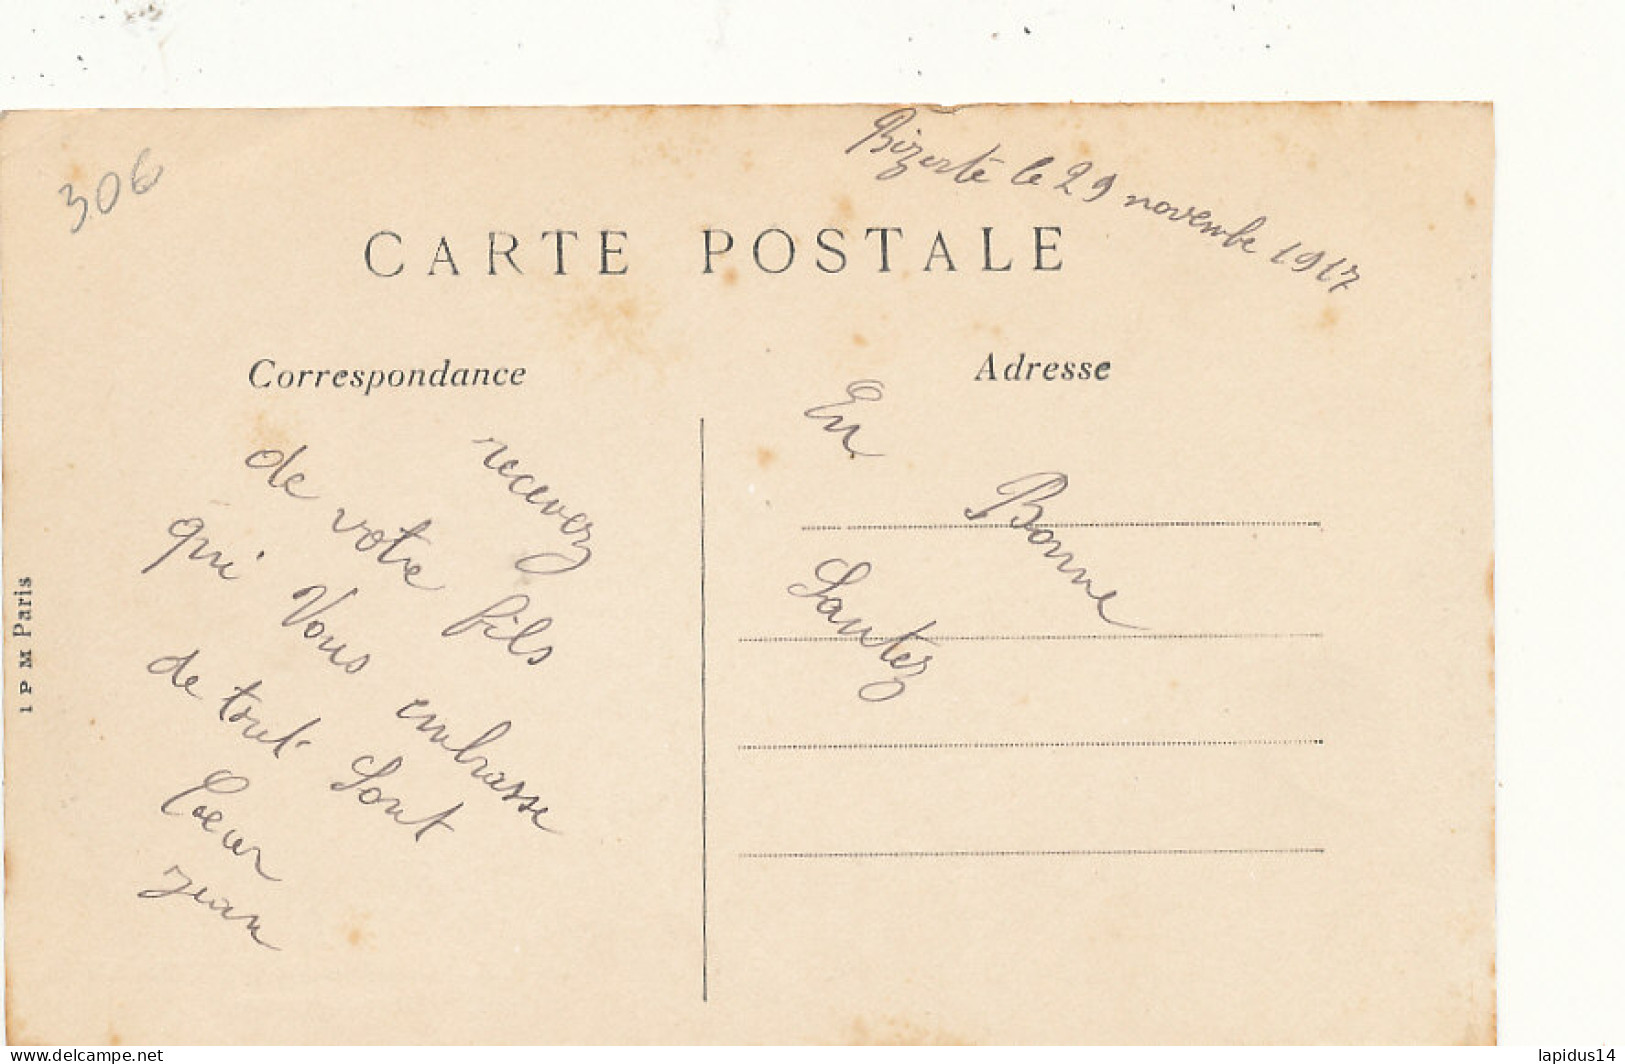 306
Bizerte le 29 novembe 1917
CARTE POSTALE
Correspondance
Adresse
recevez
de votre fils
qui Vous embrasse
de tout Sont
Coeur
Jean
En
Bonne
Santez
1 P M Paris
lapidus14
delcampe.net